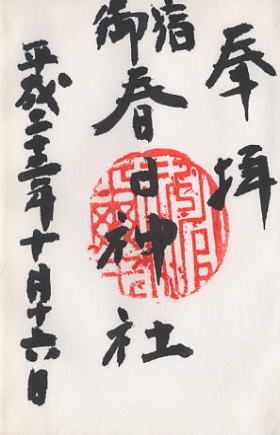 奉拝
御宿
春日神社
平成二十三年十月十六日